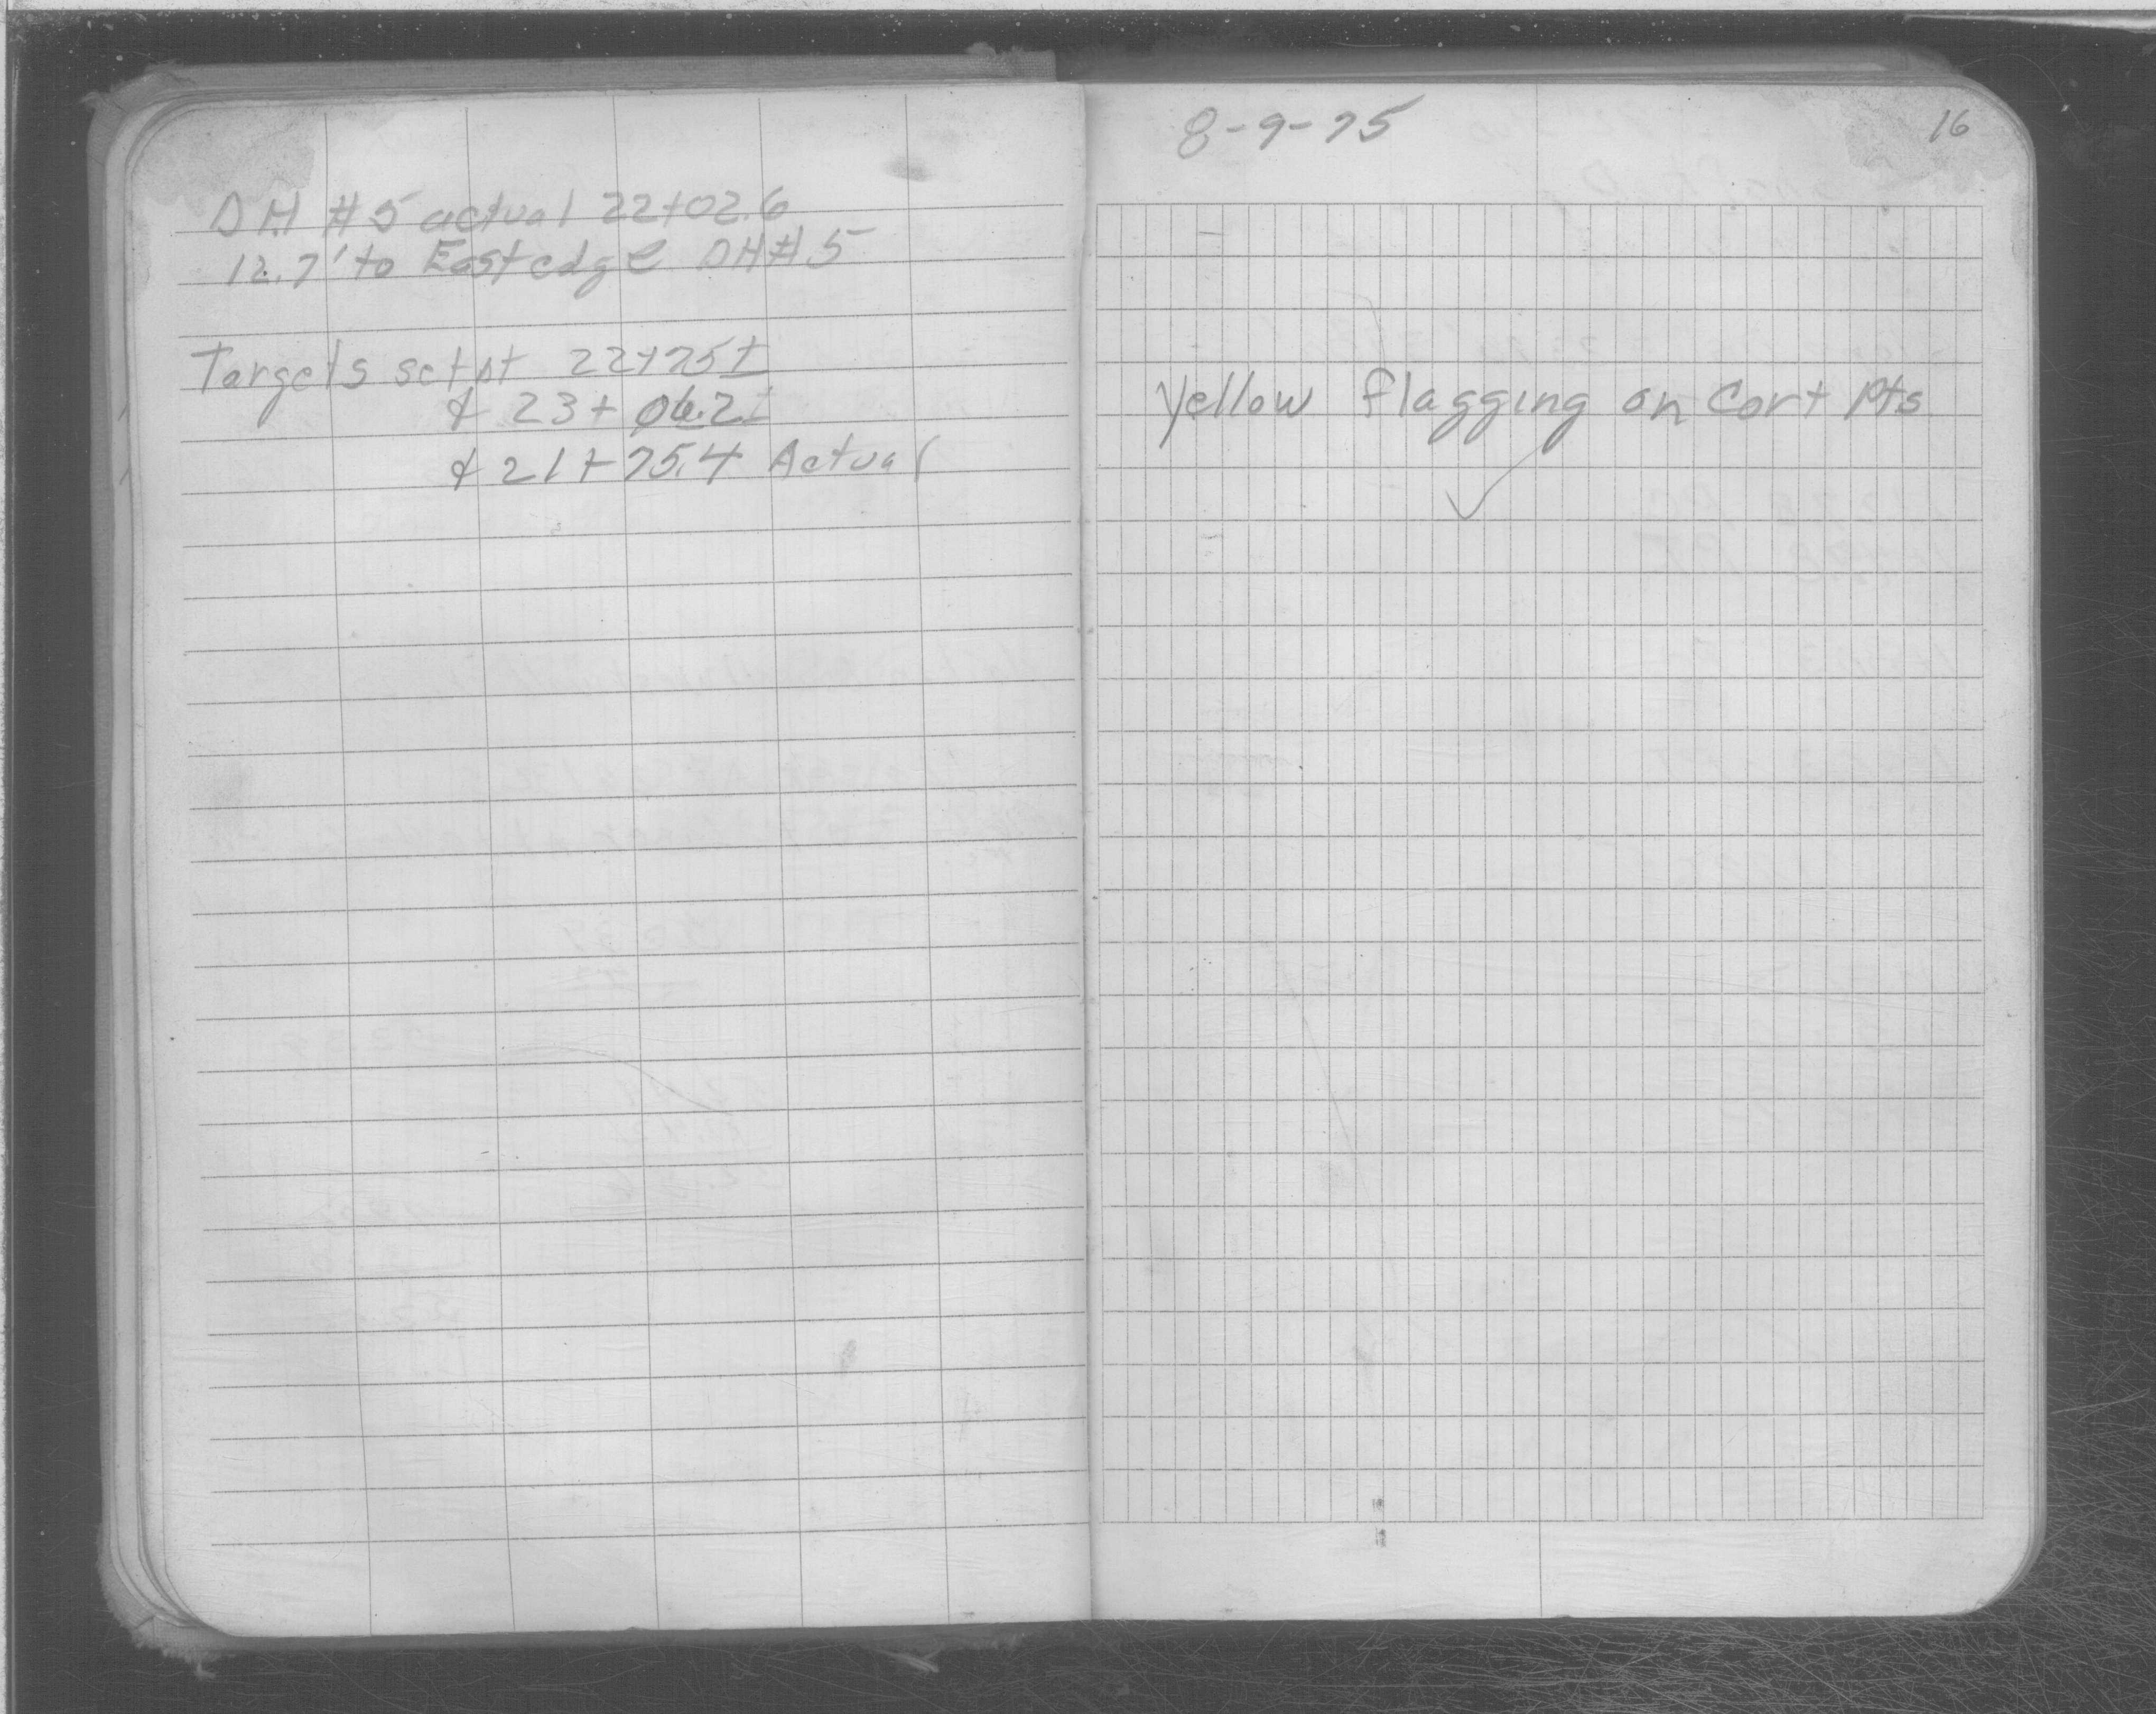 DH #5 actual 22+02.6
12.7' to East edge DH#5
Targets set at 22+75±
& 23+06.2±
& 21+75.4 Actual
8-9-75
16
Yellow flagging on Cort Pts